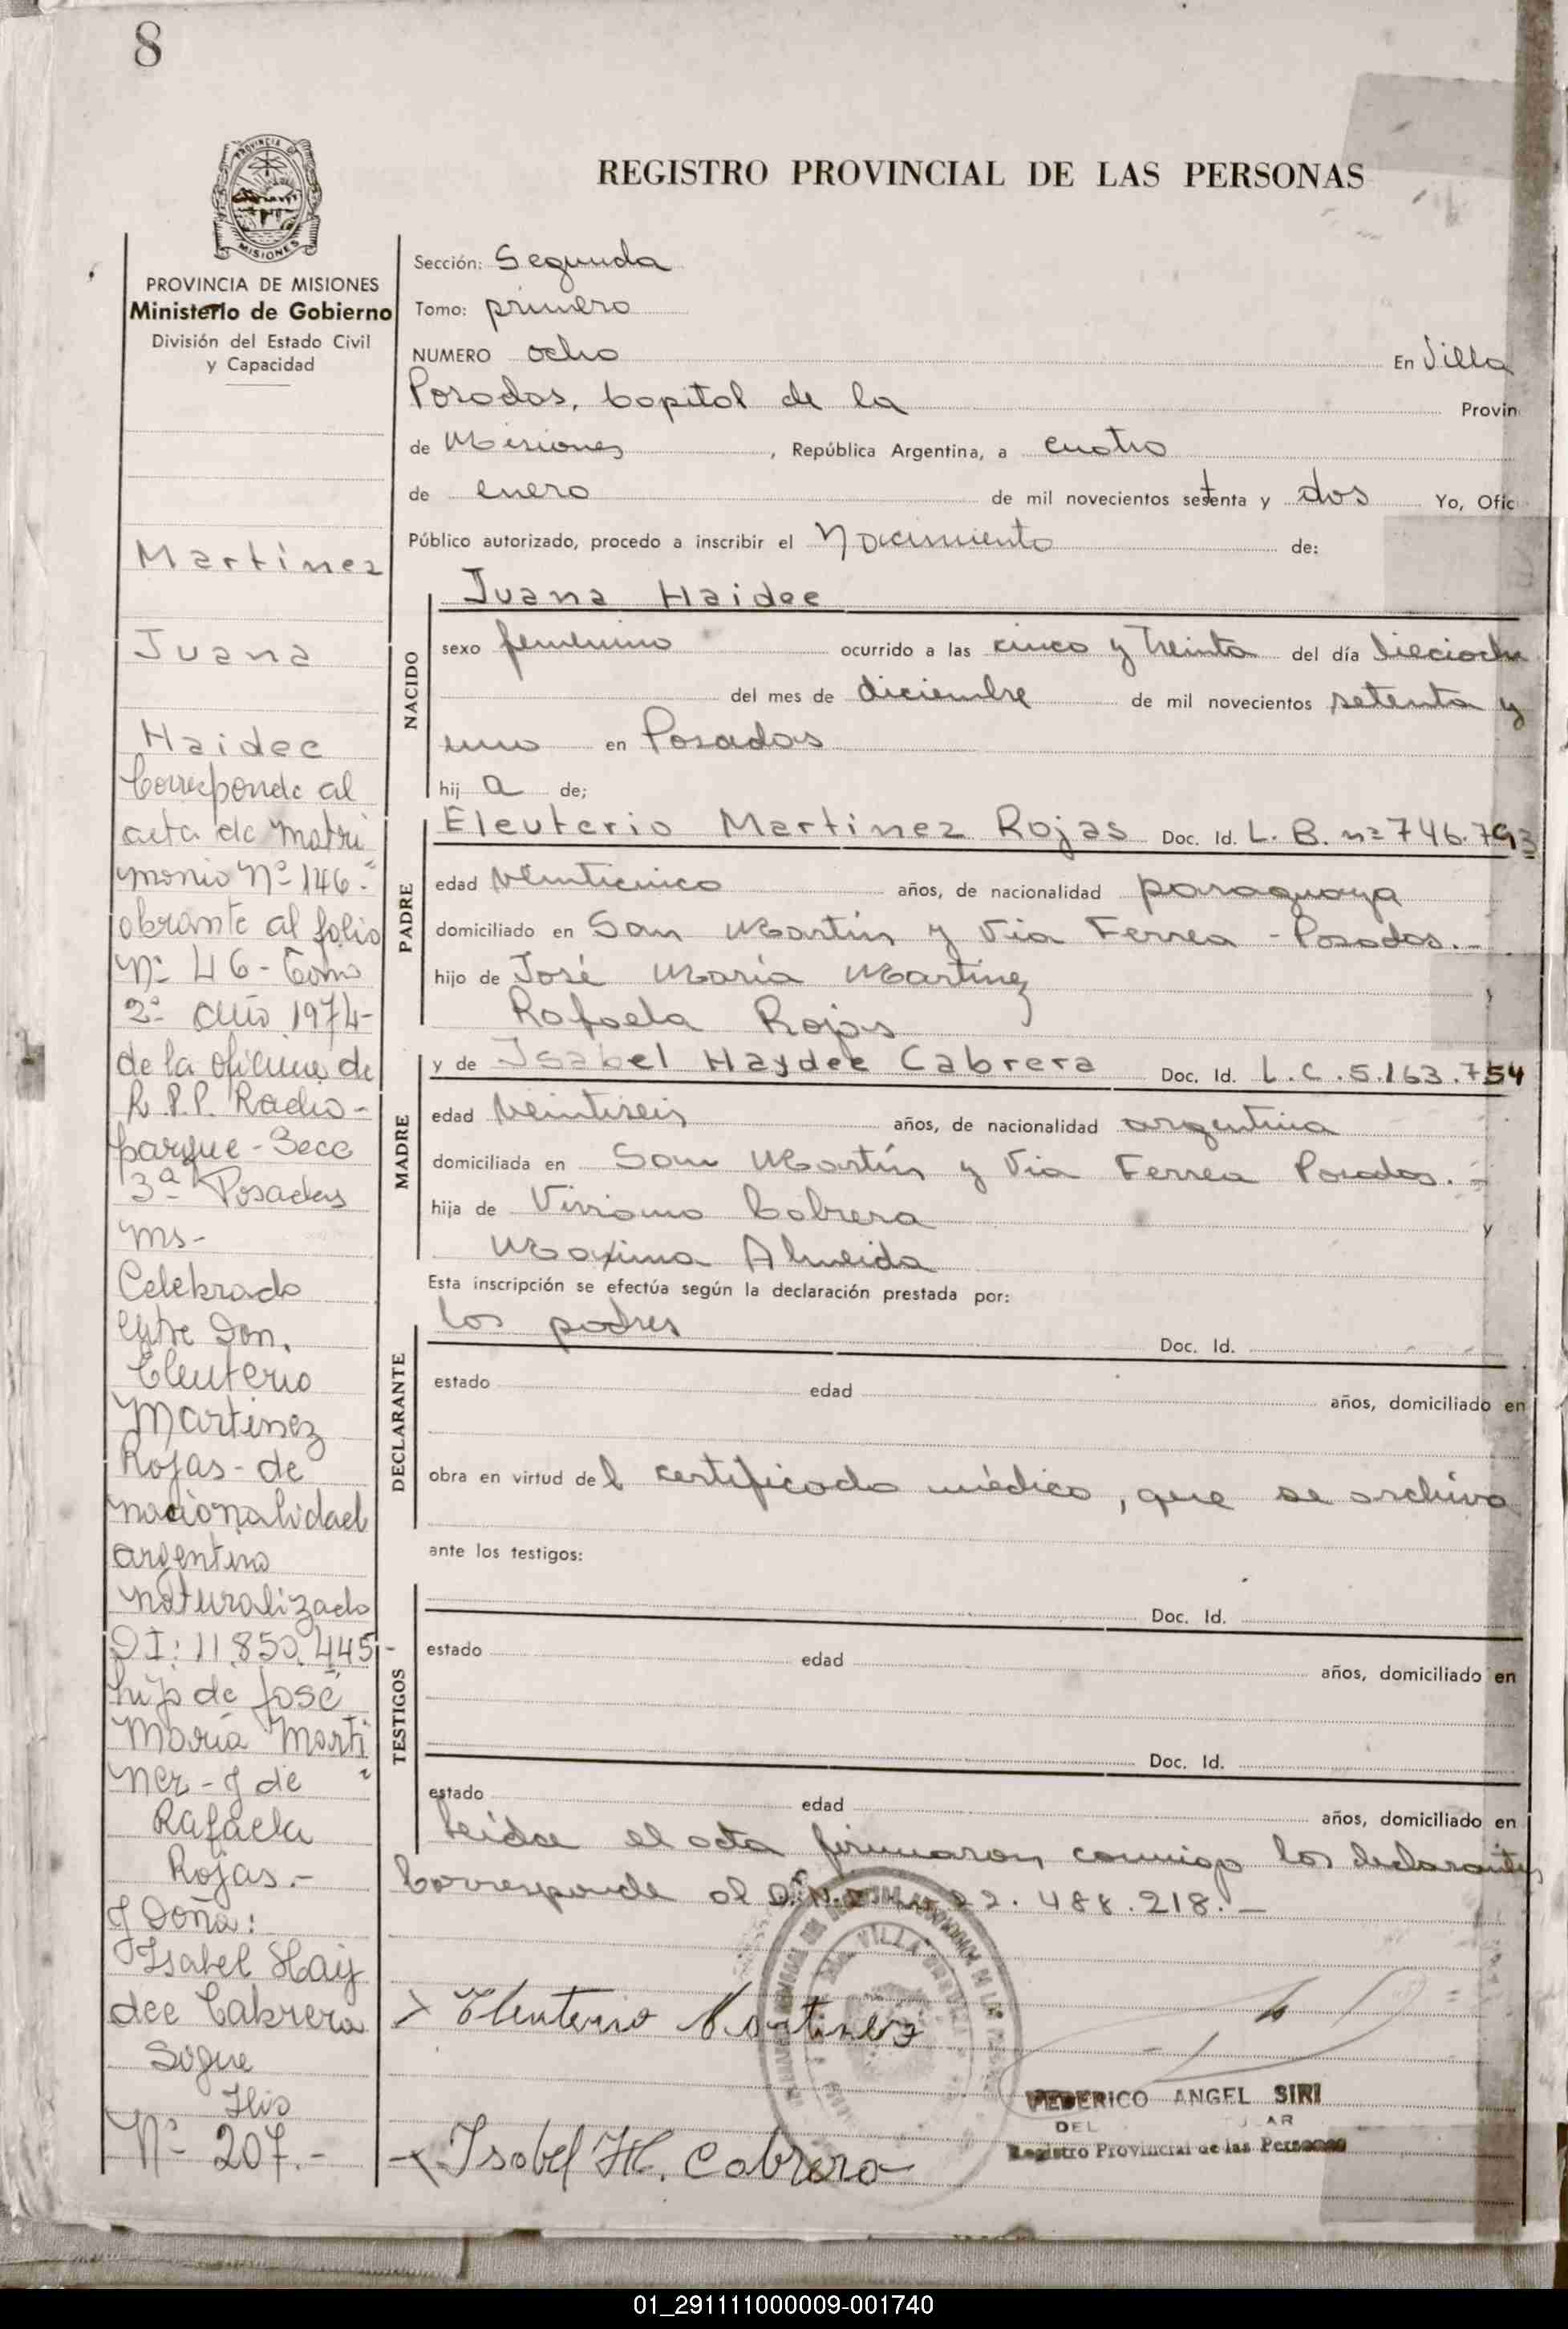 8
PROVINCIA DE
MISIONES
PROVINCIA DE MISIONES
Ministerio de Gobierno
División del Estado Civil
y Capacidad
Martínez
Juana
Haidee
Corresponde al
acta de Matri
monio Nº 146.-
obrante al folio
Nº 46- Tomo
2º año 1974-
de la oficina de
R.P.P. Radio-
parque - Secc
3ª Posadas
Ms-
Celebrado
entre Don.
Eleuterio
Martinez
Rojas - de
nacionalidad
argentino
naturalizado
DI: 11.850.445-
hijo de José
María Marti
nez - y de
Rafaela
Rojas.-
y Doña:
Isabel Hay
dee Cabrera
Sigue
Nº 207.-
REGISTRO PROVINCIAL DE LAS PERSONAS
Sección: Segunda
Tomo: primero
NUMERO ocho En Villa
Posadas, Capital de la Provin
de Misiones, República Argentina, a cuatro
de enero de mil novecientos setenta y dos Yo, Ofic
Público autorizado, procedo a inscribir el Nacimiento de:
NACIDO
Juana Haidee
sexo femenino ocurrido a las cinco y treinta del día dieciocho
del mes de diciembre de mil novecientos setenta y
uno en Posadas
hij a de;
PADRE
Eleuterio Martinez Rojas Doc. Id. L. B. nº 746.793
edad veinticinco años, de nacionalidad paraguaya
domiciliado en San Martín y Via Ferrea - Posadas.-
hijo de José María Martinez y
Rafaela Rojas
MADRE
y de Isabel Haydee Cabrera Doc. Id. L.C. 5.163.754
edad veintiseis años, de nacionalidad argentina
domiciliada en San Martín y Via Ferrea Posadas.-
hija de Viviano Cabrera y
Maxima Almeida
Esta inscripción se efectúa según la declaración prestada por:
DECLARANTE
los padres Doc. Id.
estado edad años, domiciliado en
obra en virtud del certificado médico, que se archiva
ante los testigos:
TESTIGOS
Doc. Id.
estado edad años, domiciliado en
Doc. Id.
estado edad años, domiciliado en
Leída el acta firmaron conmigo los declarantes
Corresponde al D.N.I. 22.488.218.-
Eleuterio Martinez
FEDERICO ANGEL SIRI
DEL
Registro Provincial de las Personas
Isabel H. Cabrera
01_291111000009-001740